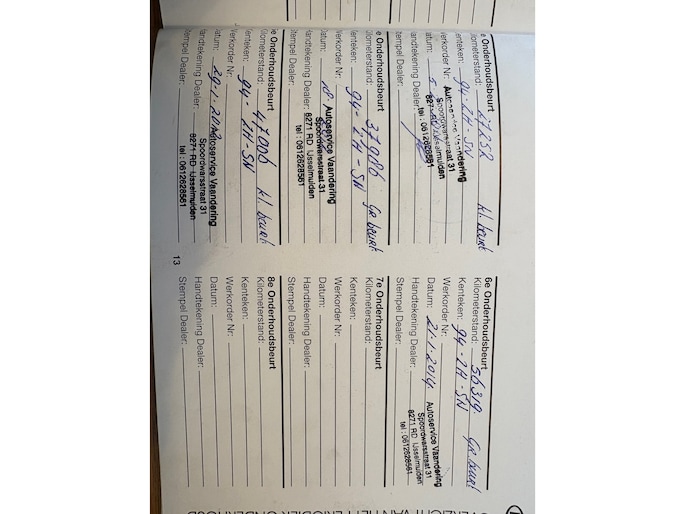 e Onderhoudsbeurt
Kilometerstand: 27252 kl. beurt
enteken: 94-ZH-SN
Verkorder Nr: Autoservice Vaandering
Spoordwarsstraat 31
atum: 8271 RD IJsselmuiden
andtekening Dealer: tel: 0612628561
tempel Dealer:
e Onderhoudsbeurt
ilometerstand: 37908b Gr beurt
enteken: 94-ZH-SN
Verkorder Nr:
Datum: Autoservice Vaandering
Spoordwarsstraat 31
Handtekening Dealer: 8271 RD IJsselmuiden
Stempel Dealer: tel: 0612628561
e Onderhoudsbeurt
Kilometerstand: 47006 kl. beurt
Kenteken: 94-ZH-SN
Verkorder Nr:
Datum: 29-1-20 Autoservice Vaandering
Spoordwarsstraat 31
Handtekening Dealer: 8271 RD IJsselmuiden
Stempel Dealer: tel: 0612628561
13
6e Onderhoudsbeurt
Kilometerstand: 56319 Gr beurt
Kenteken: 94-ZH-SN
Werkorder Nr:
Datum: 21-1-2014 Autoservice Vaandering
Spoordwarsstraat 31
Handtekening Dealer: 8271 RD IJsselmuiden
Stempel Dealer: tel: 0612628561
7e Onderhoudsbeurt
Kilometerstand:
Kenteken:
Werkorder Nr:
Datum:
Handtekening Dealer:
Stempel Dealer:
8e Onderhoudsbeurt
Kilometerstand:
Kenteken:
Werkorder Nr:
Datum:
Handtekening Dealer:
Stempel Dealer: